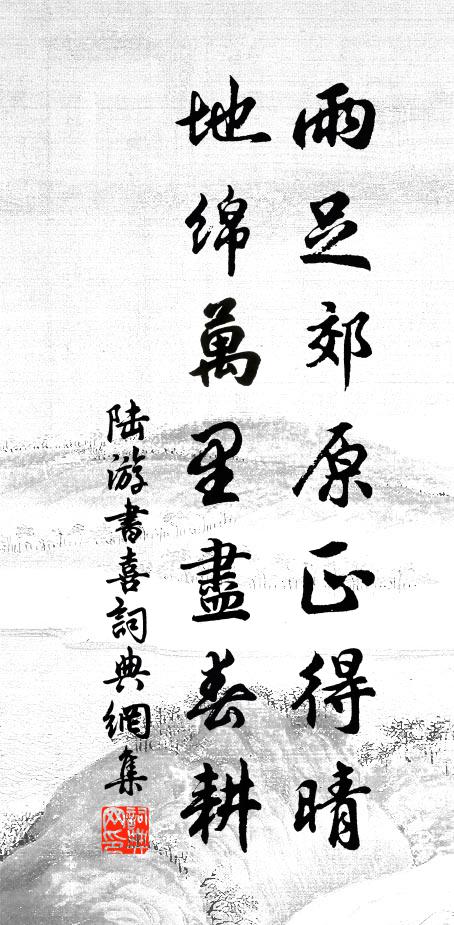 雨足郊原正得晴
地綿萬里盡春耕
陆游書喜詞典網集